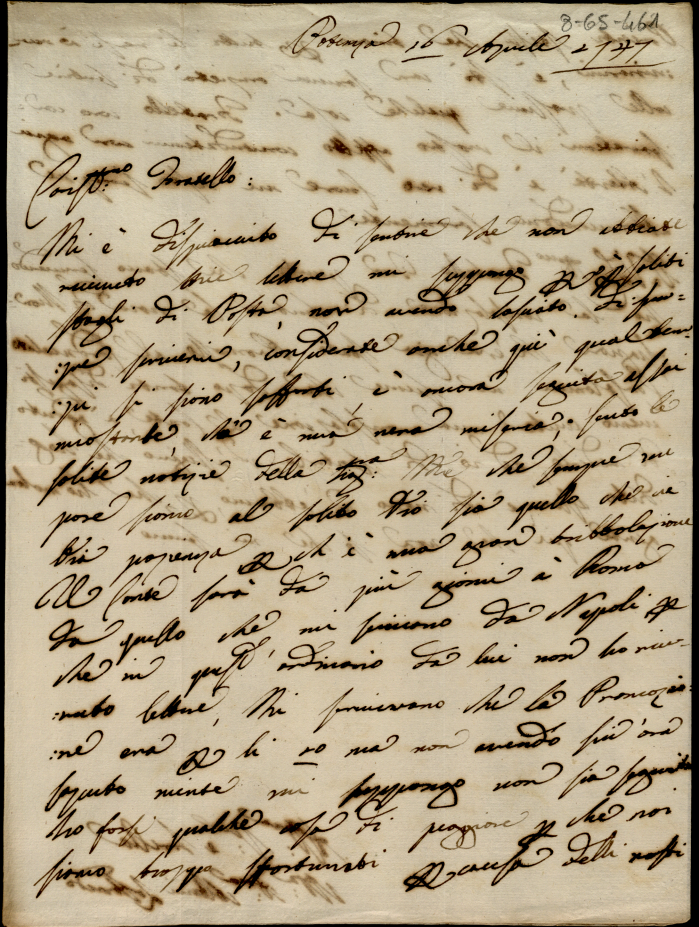 8-65-461
Cosenza 16 Aprile 1747
Cariss.mo Fratello:
Mi è dispiaciuto di sentire che non abbiate
riciuuto mie lettere mi suppongo p soliti
sbagli di Posta non avendo lasciato di sem=
:pre scriverui, considerate anche qui qual tem=
:pi si siono sofferti, e ancora seguita assai
miostante, ch'è è una vera miseria. sento le
solite notizie della Sig:ra M:e che sempre mi
pare siono al solito Dio sia quello che ne
dia pazienza p ch'è una gran tribbolazione
Il Conte sarà da più giorni à Roma
da quello che mi scrivono da Napoli p
che in quest'ordinario da lui non ho riceu=
:nuto lettere, Mi scrivevano che la Promozio:
:ne era p li 10 ma non avendo sin'ora
saputo niente mi suppongo non sia seguita
ho forsi qualche cosa di peggiore p che noi
siamo troppo sfortunati p causa delli nostri